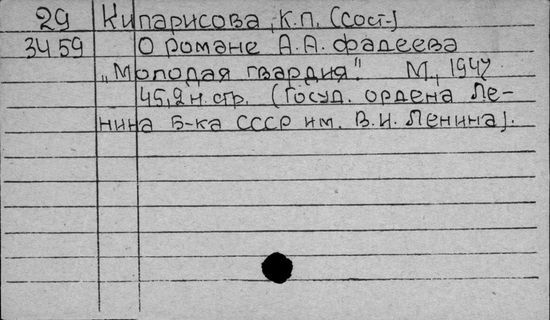 29 Кипарисова, К.П. (сост.)
3459 О романе А.А. Фадеева
„Молодая гвардия." М., 1947
45,2 н. стр. (Госуд. ордена Ле-
нина Б-ка СССР им. В.И. Ленина).